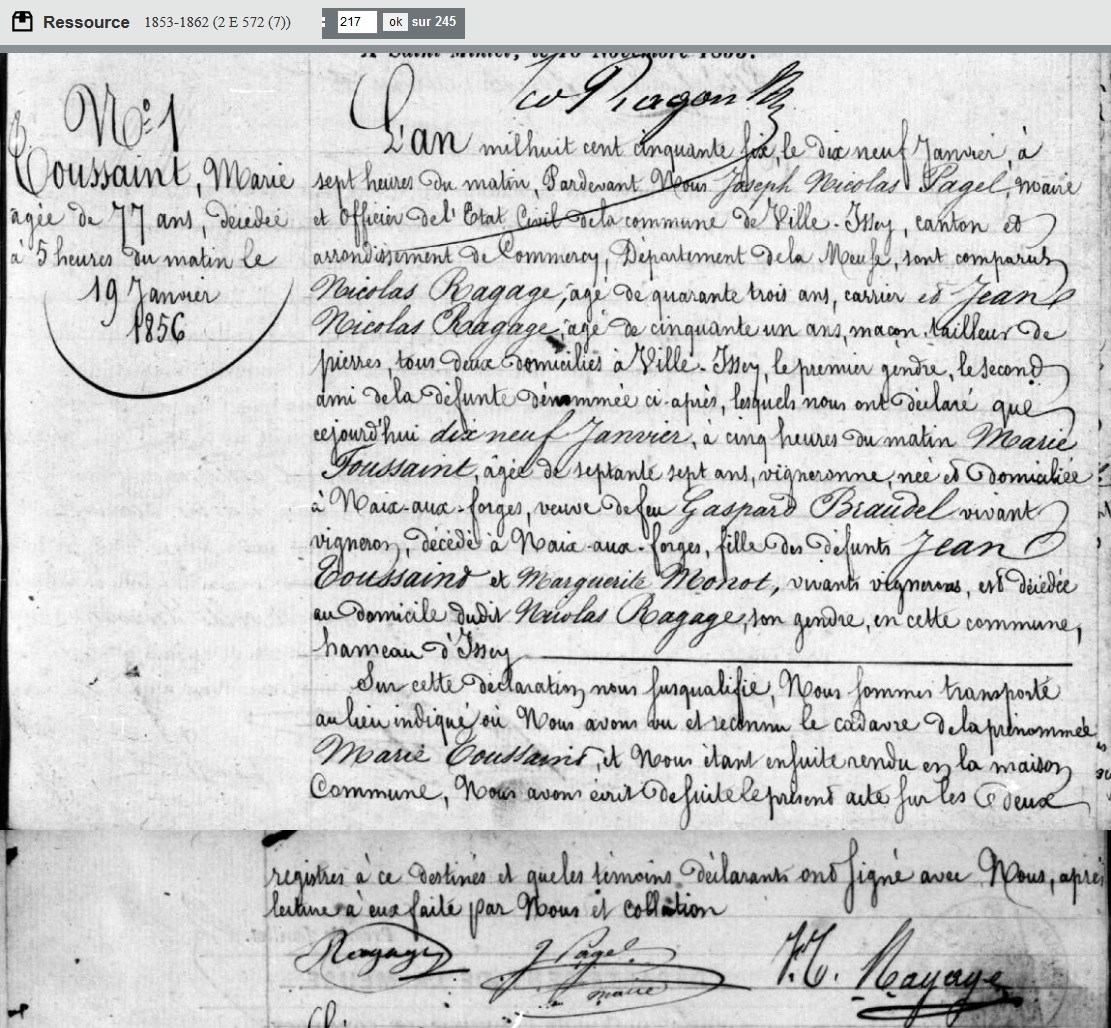 Ressource 1853-1862 (2 E 572 (7)) : 217 ok sur 245
A Saint Mihiel, le 10 Novembre 1855.
N°. 1
Toussaint, Marie
agée de 77 ans, décédée
à 5 heures du matin le
19 Janvier
1856
L'an milhuit cent cinquante six, le dix neuf Janvier, à
sept heures du matin, Pardevant Nous Joseph Nicolas Pagel, maire
et Officier de l'Etat Civil de la commune de Ville-Issey, canton et
arrondissement de Commercy, Département de la Meuse, sont comparus
Nicolas Ragage, âgé de quarante trois ans, carrier et Jean
Nicolas Ragage, âgé de cinquante un ans, maçon tailleur de
pierres, tous deux domiciliés à Ville-Issey, le premier gendre, le second
ami de la défunte dénommée ci-après, lesquels nous ont déclaré que
cejourd'hui dix neuf Janvier, à cinq heures du matin Marie
Toussaint, âgée de septante sept ans, vigneronne, née et domiciliée
à Naix-aux-forges, veuve de feu Gaspard Braudel vivant
vigneron, décédé à Naix-aux-forges, fille des défunts Jean
Toussaint et Marguerite Monot, vivants vignerons, est décédée
au domicile dudit Nicolas Ragage, son gendre, en cette commune,
hameau d'Issey
Sur cette déclaration, nous susqualifié, Nous sommes transporté
au lieu indiqué où Nous avons vu et reconnu le cadavre de la prénommée
Marie Toussaint, et Nous étant ensuite rendu en la maison
Commune, Nous avons écrit de suite le présent acte sur les deux
registres à ce destinés et que les témoins déclarants ont signé avec Nous, après
lecture à eux faite par Nous et collation
Ragage J. Pagel. maire J. N. Ragage